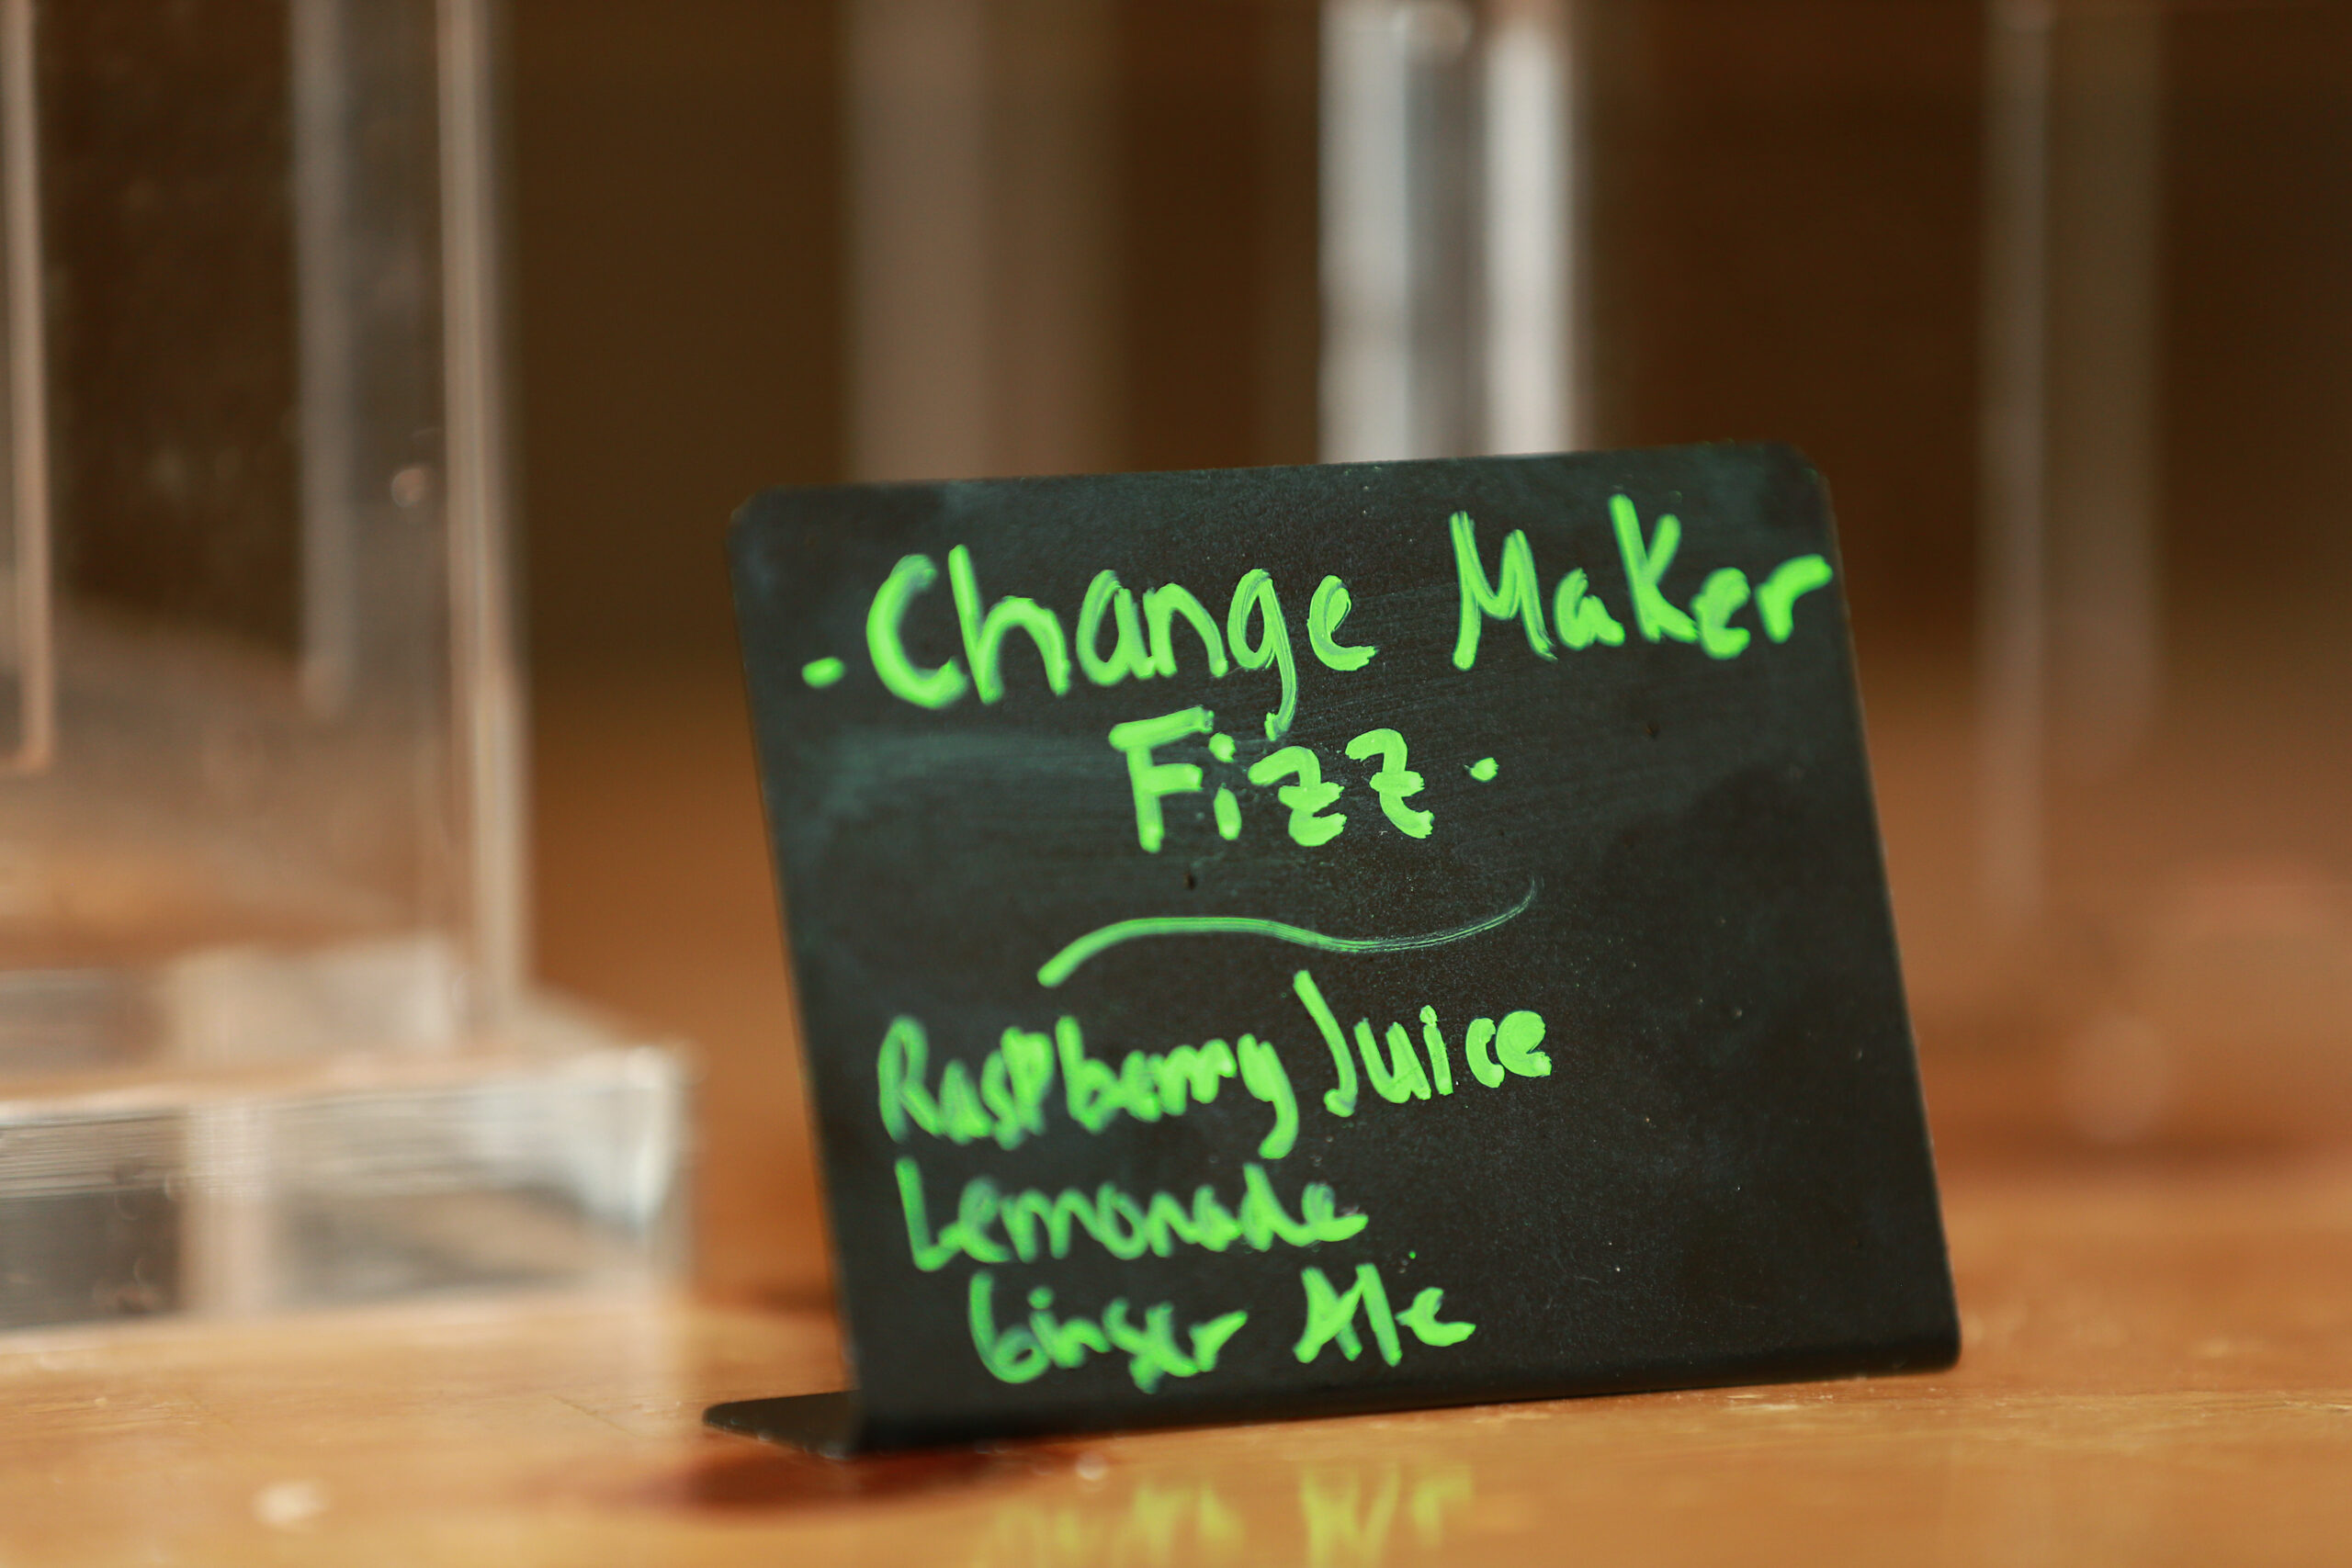 - Change Maker
Fizz -
Raspberry Juice
Lemonade
Ginger Ale